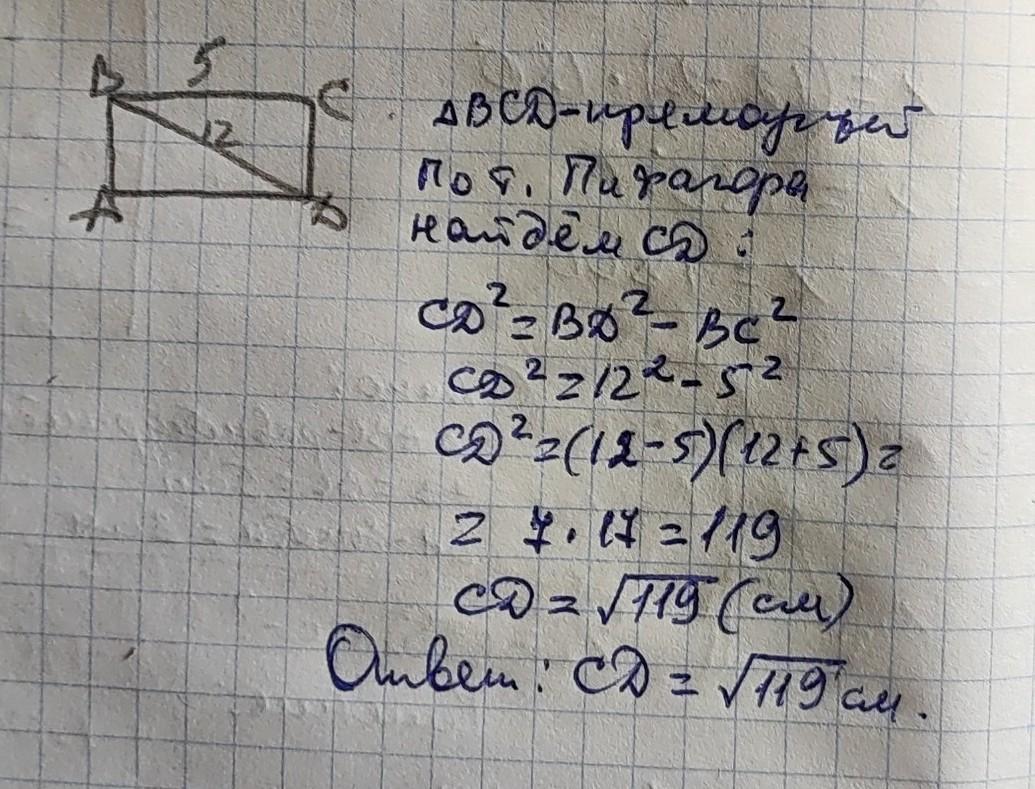 B 5 C
12
A D
ΔBCD - прямоуг-ый
По т. Пифагора
найдём CD :
CD² = BD² - BC²
CD² = 12² - 5²
CD² = (12-5)(12+5) =
= 7 · 17 = 119
CD = √119 (см)
Ответ: CD = √119 см.